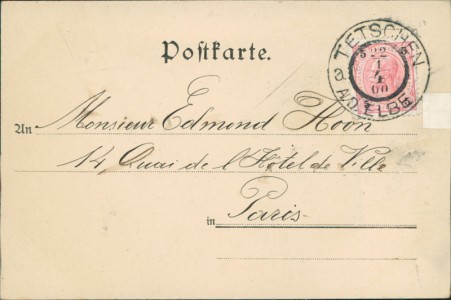 Postkarte.
TETSCHEN
22
1
00
a
A/D. ELBE
An Monsieur Edmond Hoon
14 Quai de l'Hôtel de Ville
in Paris